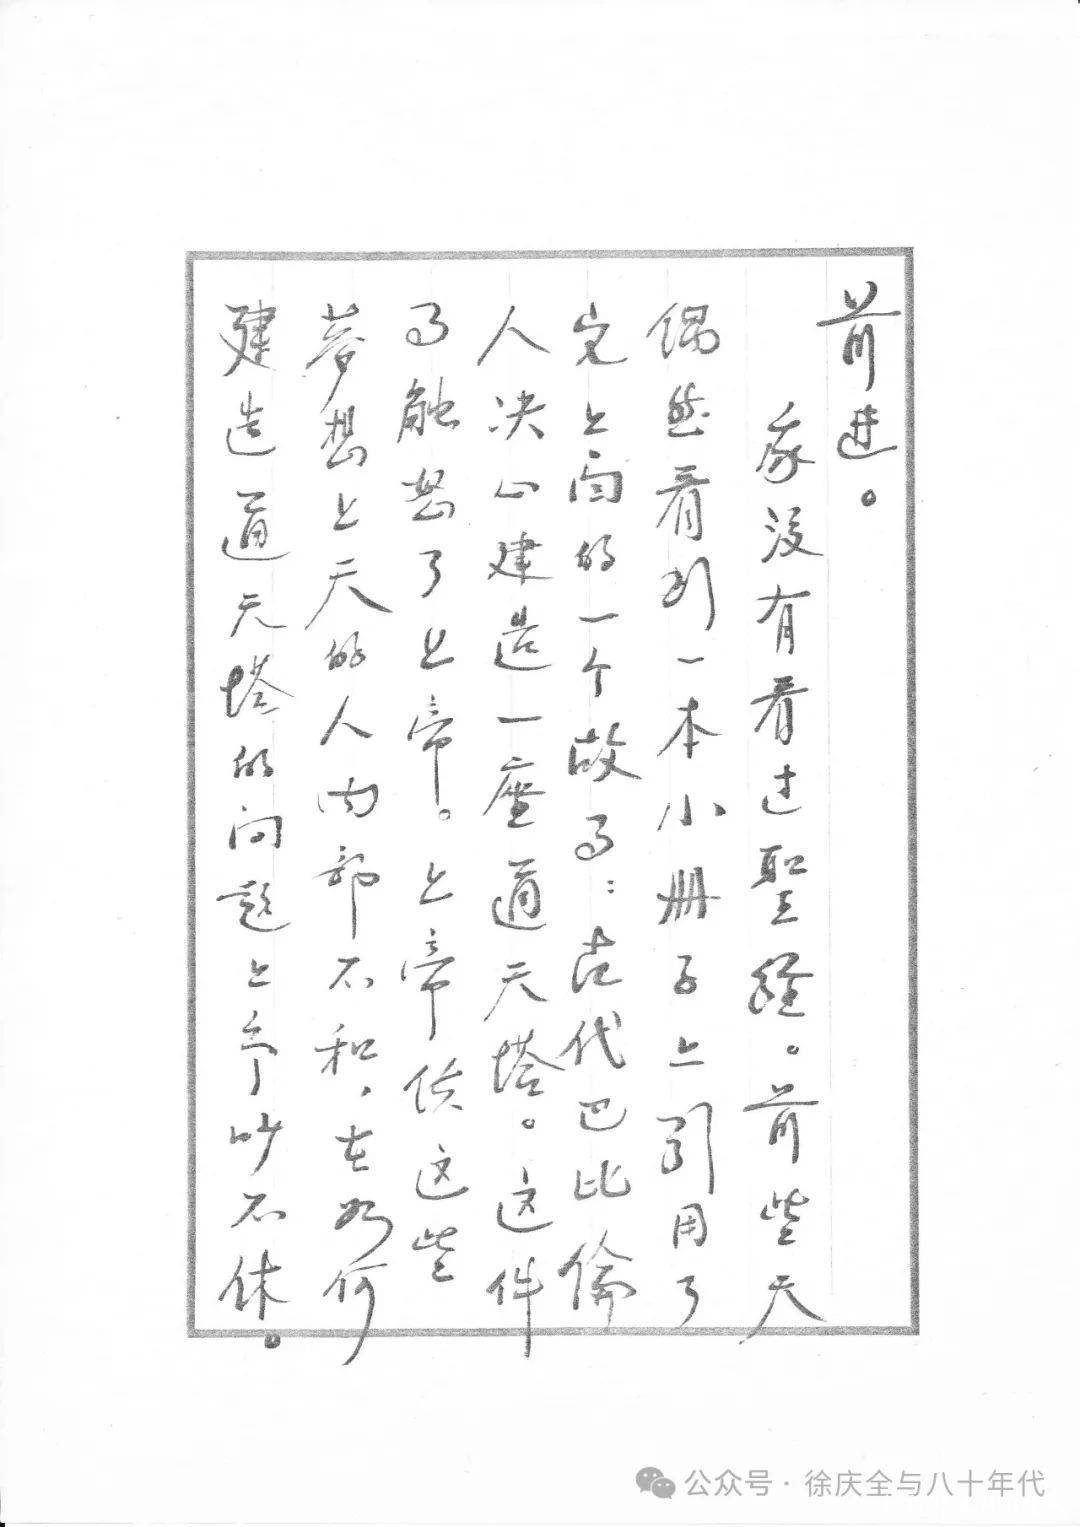 前进。
我没有看过聖经。前些天
偶然看到一本小册子上引用了
它上面的一个故事：古代巴比倫
人决心建造一座通天塔。这件
事触怒了上帝。上帝使这些
梦想上天的人内部不和，在如何
建造通天塔的问题上争吵不休。
公众号·徐庆全与八十年代